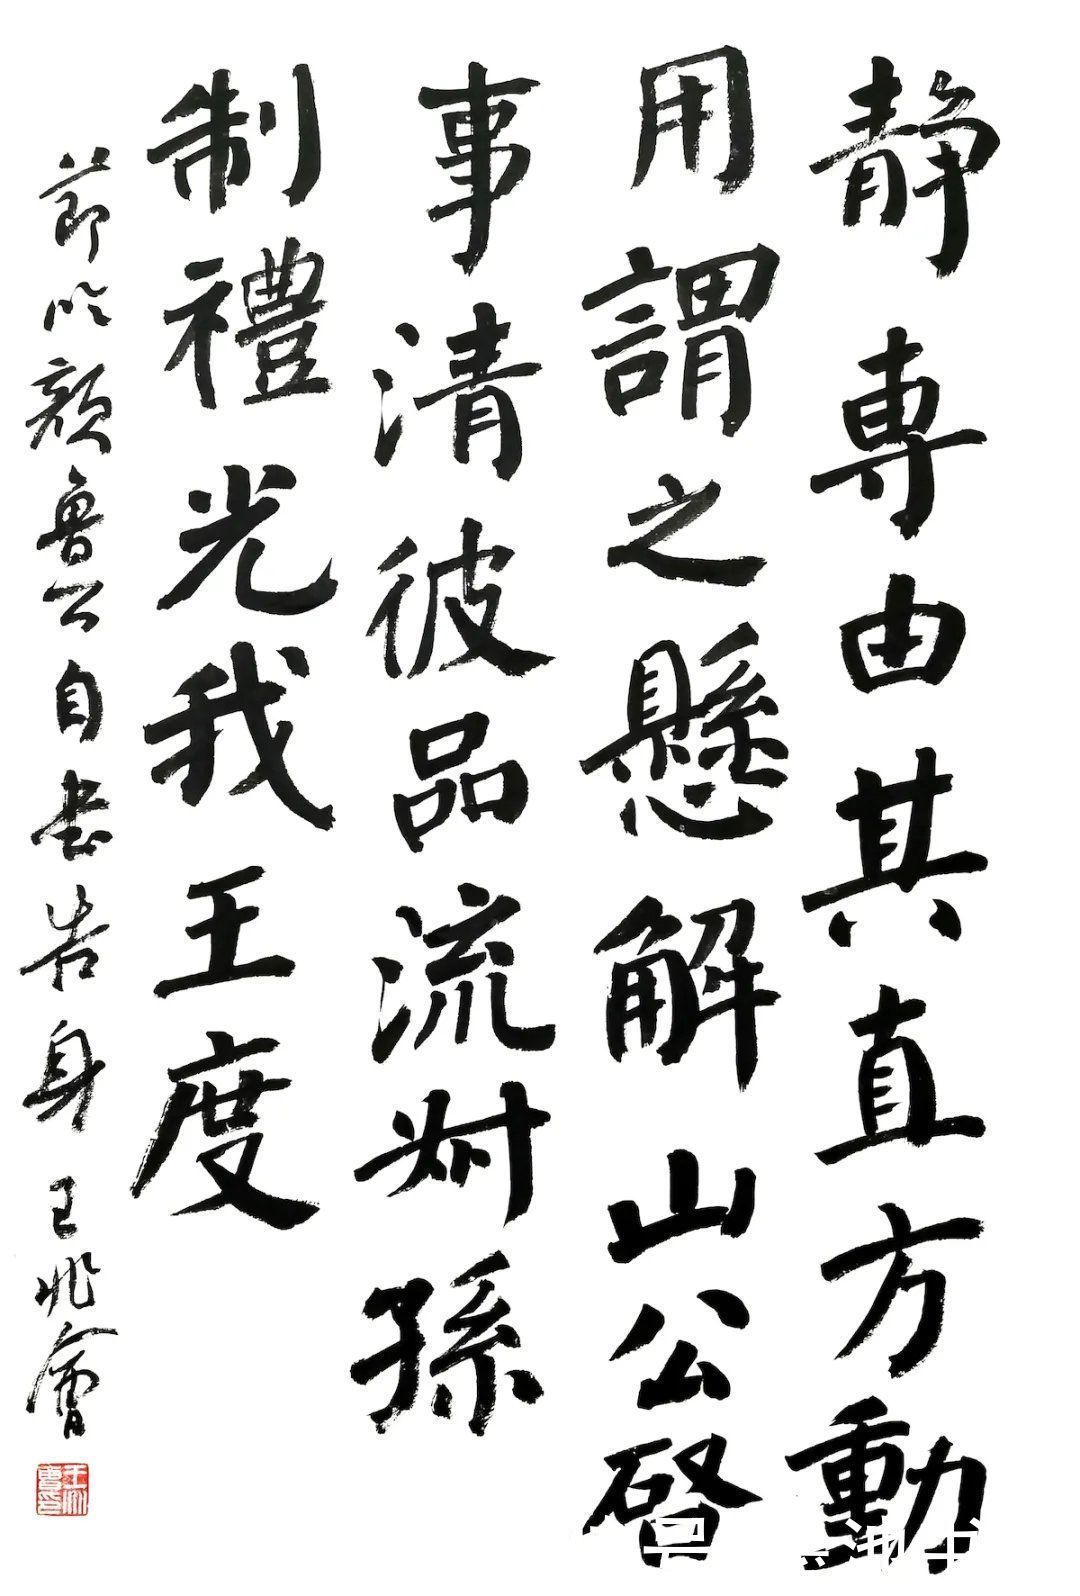 静専由其直方動
用謂之懸解山公啓
事清彼品流叔孫
制禮光我王度
節临颜魯公自书告身 王兆會